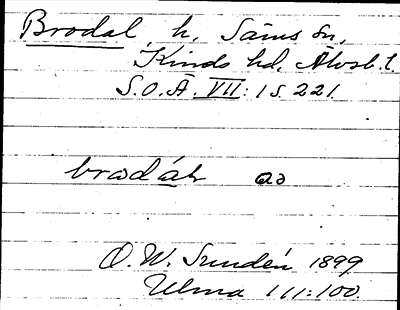 Brodal h, Säms sn,
Kinds hd, Älvsb. l.
S.O.Ä. VII: 1 s. 221.
O. W. Sundén 1899
Ulma 111:100.